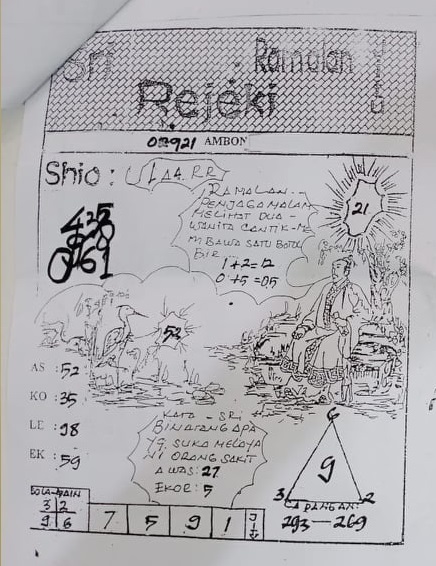 Sri
Ramalan
Jitu
Rejeki
AMBON
Shio : ULAR
RAMALAN
PENJAGA MALAM
MELIHAT DUA -
WANITA CANTIK - ME
M BAWA SATU BOTOL
BIR
1+2=12
0+5=05
21
52
AS : 52
KO : 35
LE : 98
EK : 59
KATA - SRI
BINATANG APA
YG SUKA MELAYA
NI ORANG SAKIT
AWAS: 27
EKOR: 5
6
9
3 2
CADANGAN:
293 — 269
BOLA-MAIN
3 2
9 6
7 5 9 1
JITU